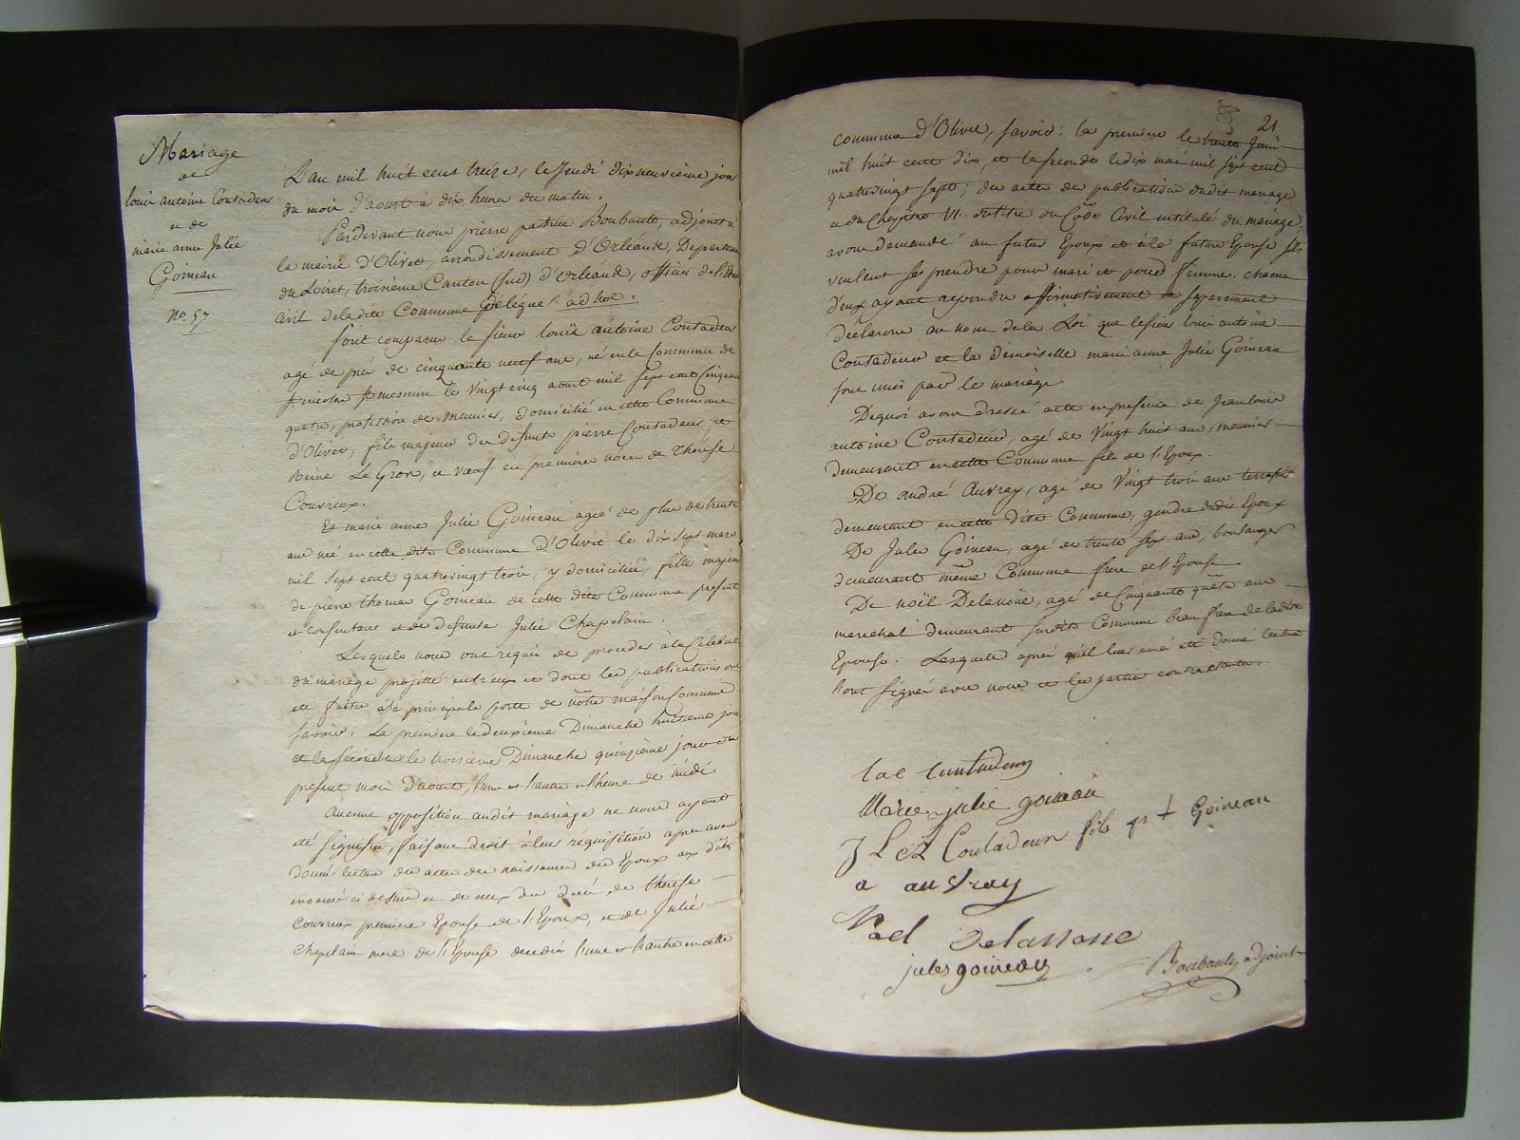 Mariage
de
louis antoine Contadeur
et de
marie anne Julie
Goineau
no. 57
L'an mil huit cent treize, le Jeudi dixneuvieme jour
du mois d'aoust à dix heures du matin.
Pardevant nous pierre patrice Boubault, adjoint à
la mairie d'Olivet, arrondissement d'Orléans, Departement
du Loiret, troisieme Canton (sud) d'Orléans, officier de l'Etat
civil de la dite Commune délégué ad hoc.
sont comparus le sieur louis antoine Contadeur
agé de près de cinquante neuf ans, né en la Commune de
St mesmin le vingt cinq aout mil sept cent cinquante
quatre, profession de meunier, domicilié en cette Commune
d'Olivet, fils majeur de defunts pierre Contadeur, et
Reine Le Gros, et veuf en premiere noces de Thérèse
Couvreux.
Et marie anne Julie Goineau agée de plus de trente
ans née en cette dite Commune d'Olivet le dix sept mars
mil sept cent quatrevingt trois, y domiciliée, fille majeure
de pierre thomas Goineau de cette dite Commune present
et consentant et de defunte Julie Chapelain.
Lesquels nous ont requis de proceder à la Celebration
du mariage projetté entr'eux et dont les publications ont
été faites à la principale porte de notre maison Commune
savoir: La premiere le deuxieme Dimanche huitieme jour
et la seconde le troisieme Dimanche quinzieme jour du
present mois d'aoust, l'une et l'autre à l'heure de midi
Aucune opposition audit mariage ne nous ayant
été signifiée, faisant droit à leur réquisition apres avoir
donné lecture des actes de naissances des Epoux aux dates
enoncées ci dessus et de ceux du décès de therese
Couvreux premiere Epouse de l'Epoux, et de Julie
Chapelain mere de l'Epouse decedées l'une et l'autre en cette
21
commune d'Olivet, savoir: la premiere le Juin
mil huit cent dix, et la seconde le dix mai mil sept cent
quatrevingt sept; des actes de publication dudit mariage
et du Chapitre VI. du titre du Code Civil intitulé du mariage,
avons demandé au futur Epoux et à la future Epouse s'ils
veulent se prendre pour mari et pour femme. chacun
d'eux ayant repondu affirmativement et separement
declarons au nom de la Loi que le sieur louis antoine
Contadeur et la demoiselle marie anne Julie Goineau
sont unis par le mariage
De quoi avons dressé acte en presence de Jean louis
antoine Contadeur, agé de vingt huit ans, meunier
demeurant en cette Commune fils de l'Epoux.
De andré Auvray, agé de vingt trois ans
demeurant en cette dite Commune, gendre dudit Epoux
De Jules Goineau, agé de trente sept ans, boulanger
demeurant même Commune frere de l'Epouse
De noël Delanoue, agé de Cinquante quatre ans
marechal demeurant susdite Commune beau frere de ladite
Epouse. Lesquels après qu'il leur en a été donné lecture
l'ont signé avec nous et les parties contractantes.
lac contadeur
Marie julie goineau
J L A Contadeur fils p t Goineau
a auvray
Noel Delanoue
jules goineau
Boubault adjoint